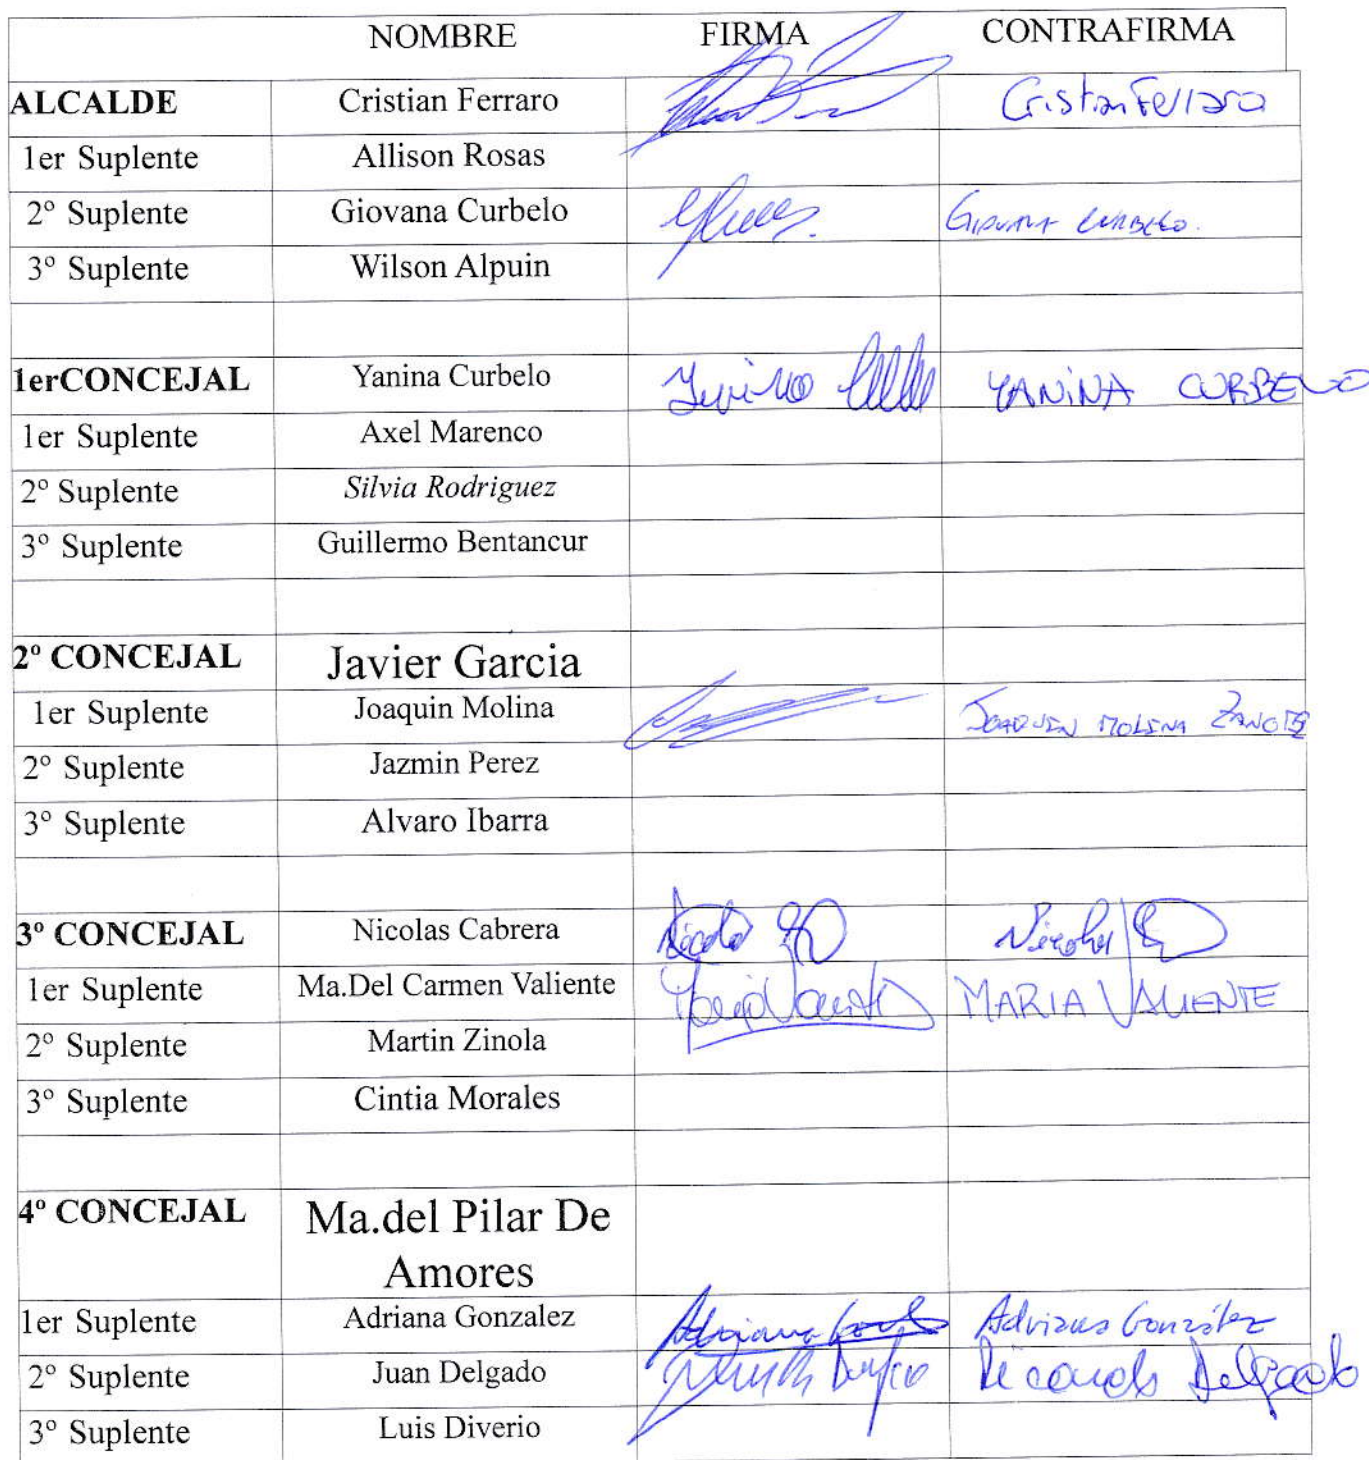 NOMBRE FIRMA CONTRAFIRMA
ALCALDE Cristian Ferraro Cristian Ferraro
1er Suplente Allison Rosas
2º Suplente Giovana Curbelo Giovana Curbelo.
3º Suplente Wilson Alpuin
1erCONCEJAL Yanina Curbelo YANiNA CURBELO
1er Suplente Axel Marenco
2º Suplente Silvia Rodriguez
3º Suplente Guillermo Bentancur
2º CONCEJAL Javier Garcia
1er Suplente Joaquin Molina JOAQUIN MOLINA
2º Suplente Jazmin Perez
3º Suplente Alvaro Ibarra
3º CONCEJAL Nicolas Cabrera Nicolas
1er Suplente Ma.Del Carmen Valiente MARIA VALIENTE
2º Suplente Martin Zinola
3º Suplente Cintia Morales
4º CONCEJAL Ma.del Pilar De
Amores
1er Suplente Adriana Gonzalez Adriana Adriana González
2º Suplente Juan Delgado Ricardo Delgado
3º Suplente Luis Diverio